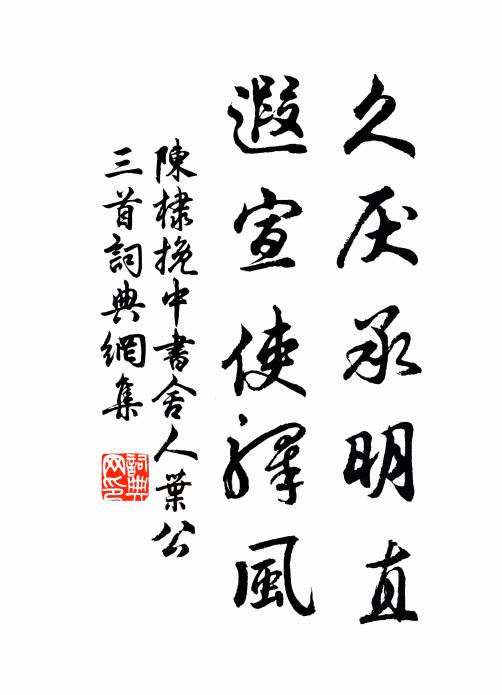 久厌承明直
遐宣使驛風
陳棣挽中書舍人葉公
三首詞典網集
詞典網印